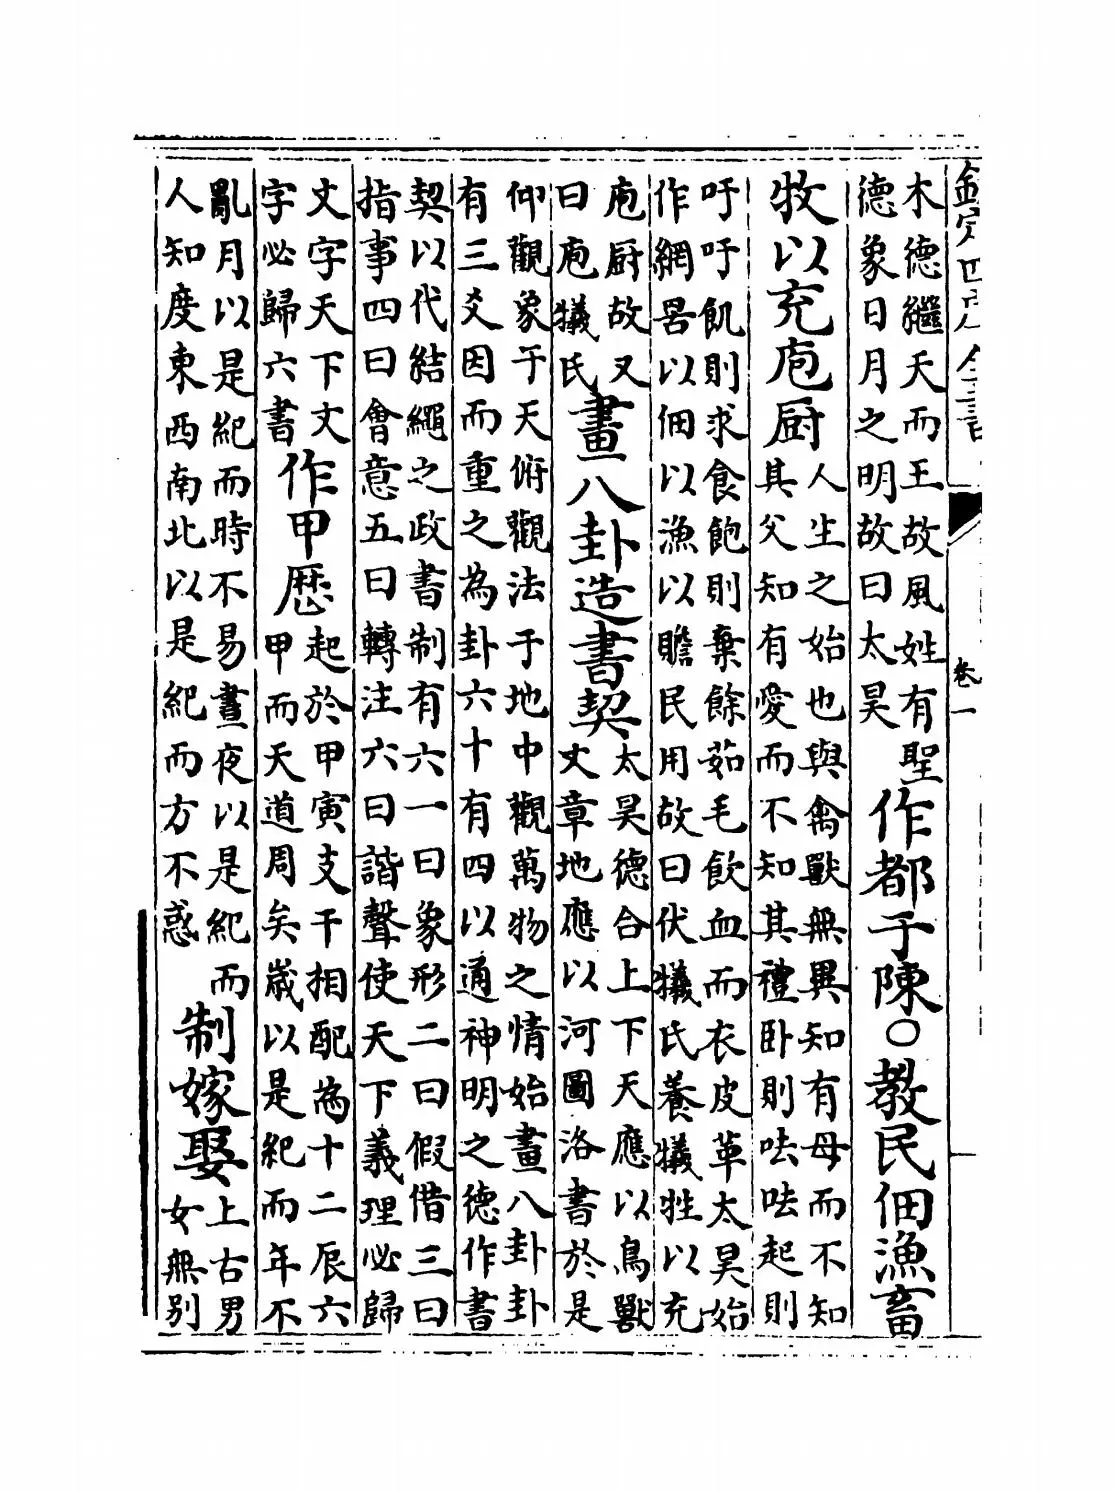 欽定四庫全書
卷一
木德繼天而王故風姓有聖
德象日月之明故曰太昊
作都于陳○教民佃漁畜
牧以充庖厨
人生之始也與禽獸無異知有母而不知
其父知有愛而不知其禮卧則呿呿起則
吁吁飢則求食飽則棄餘茹毛飲血而衣皮革太昊始
作網罟以佃以漁以贍民用故曰伏犧氏養犧牲以充
庖厨故又
曰庖犧氏
畫八卦造書契
太昊德合上下天應以鳥獸
文章地應以河圖洛書於是
仰觀象于天俯觀法于地中觀萬物之情始畫八卦卦
有三爻因而重之為卦六十有四以通神明之德作書
契以代結繩之政書制有六一曰象形二曰假借三曰
指事四曰會意五曰轉注六曰諧聲使天下義理必歸
文字天下文
字必歸六書
作甲歴
起於甲寅支干相配為十二辰六
甲而天道周矣歲以是紀而年不
亂月以是紀而時不易晝夜以是紀而
人知度東西南北以是紀而方不惑
制嫁娶
上古男
女無別